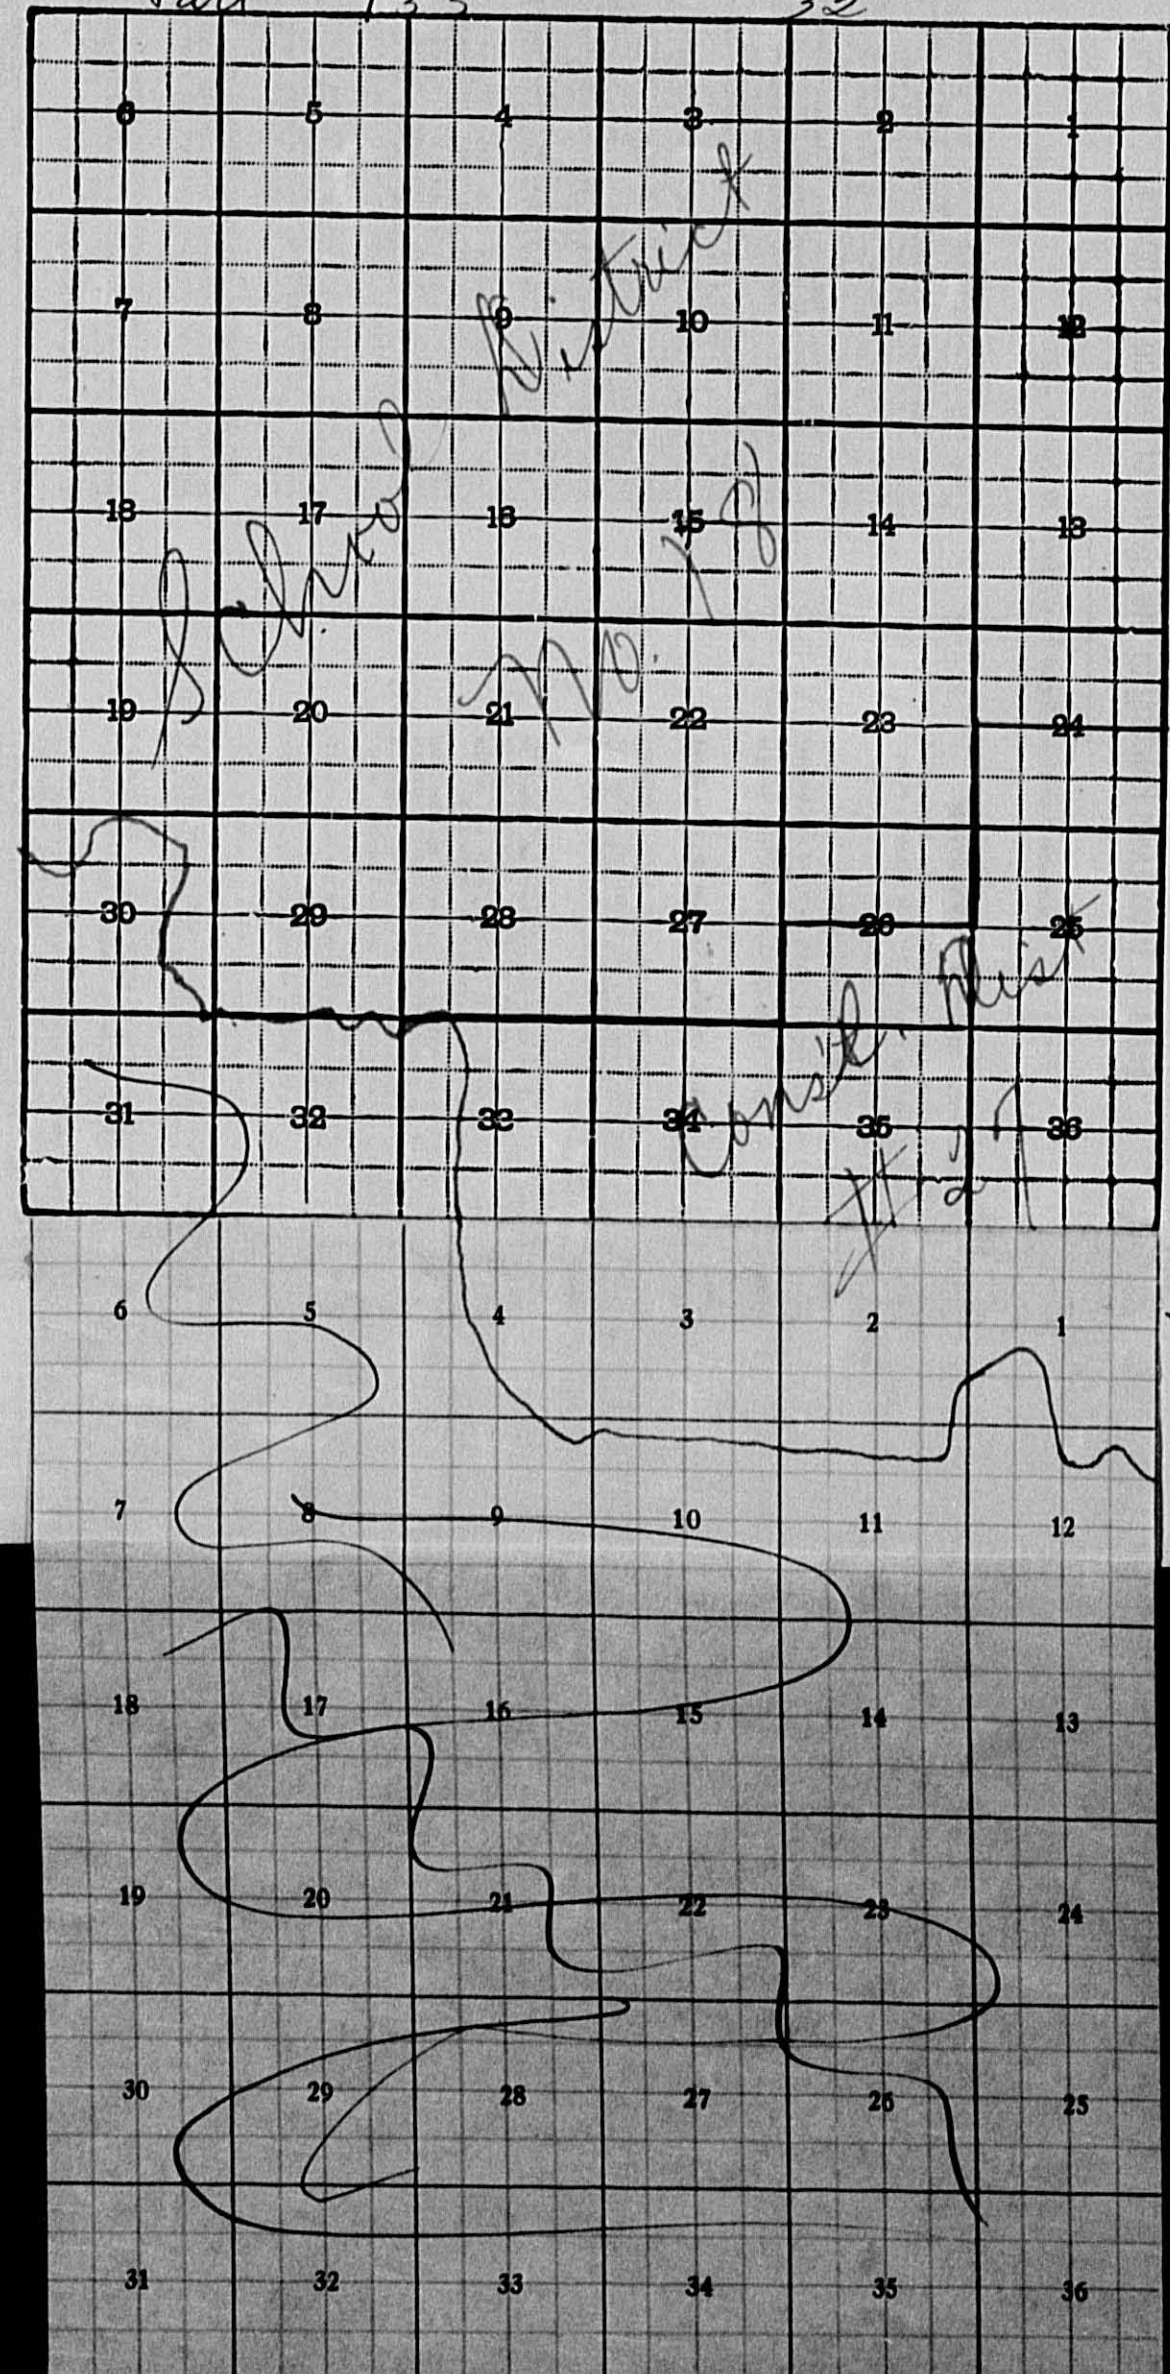 133 32
6 5 4 3 2 1
7 8 9 10 11 12
18 17 16 15 14 13
19 20 21 22 23 24
30 29 28 27 26 25
31 32 33 34 35 36
School District
No. 18
Consol. Dist
# 27
6 5 4 3 2 1
7 8 9 10 11 12
18 17 16 15 14 13
19 20 21 22 23 24
30 29 28 27 26 25
31 32 33 34 35 36